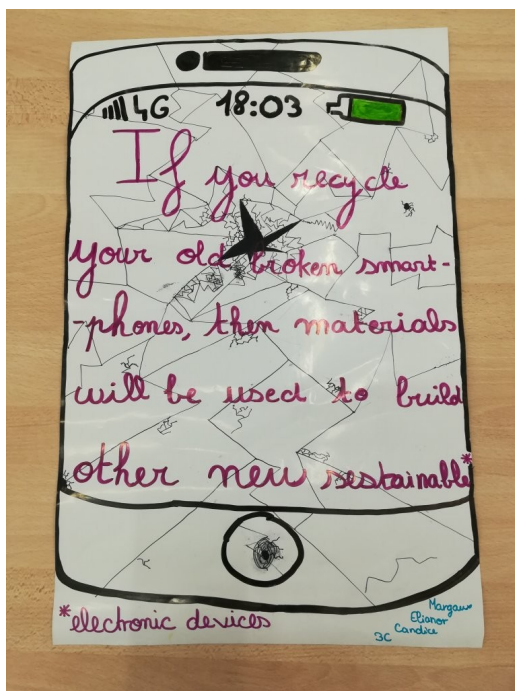 4G 18:03
If you recycle
your old broken smart-
-phones, then materials
will be used to build
other new restainable*
*electronic devices
Margaux
Elianor
Candice
3C